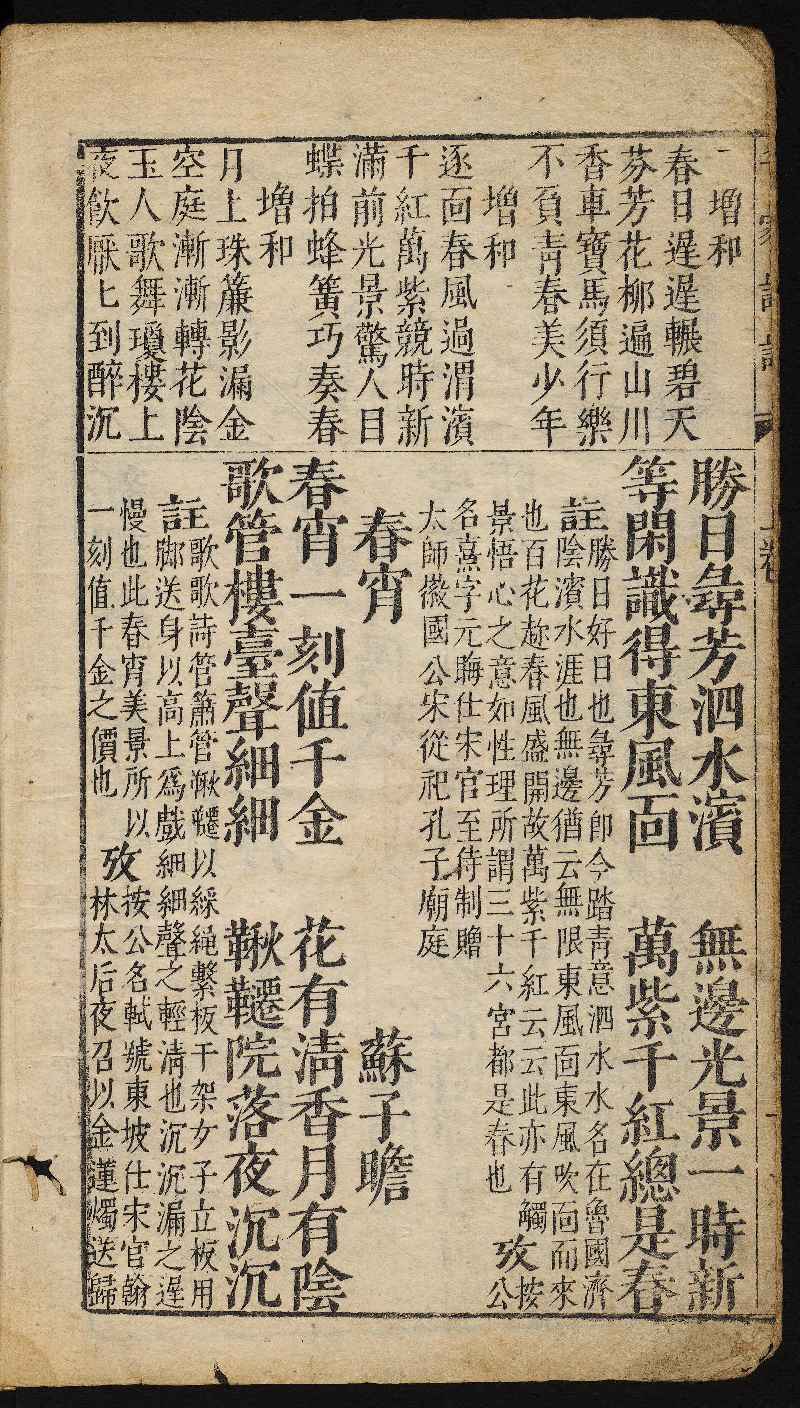 千家詩註
上卷
增和
春日遲遲輾碧天
芬芳花柳遍山川
香車寶馬須行樂
不負青春美少年
增和
逐面春風過渭濱
千紅萬紫競時新
滿前光景驚人目
蝶拍蜂簧巧奏春
增和
月上珠簾影漏金
空庭漸漸轉花陰
玉人歌舞瓊樓上
夜飲厭厭到醉沉
勝日尋芳泗水濱 無邊光景一時新
等閑識得東風面 萬紫千紅總是春
註勝日好日也尋芳即今踏青意泗水水名在魯國濟
陰濱水涯也無邊猶云無限東風面東風吹面而來
也百花趂春風盛開故萬紫千紅云云此亦有觸
景悟心之意如性理所謂三十六宮都是春也 攷按公
名熹字元晦仕宋官至待制贈
太師徽國公宋從祀孔子廟庭
春宵 蘇子瞻
春宵一刻值千金 花有清香月有陰
歌管樓臺聲細細 鞦韆院落夜沉沉
註歌歌詩管簫管鞦韆以綵繩繫板干架女子立板用
脚送身以高上為戲細細聲之輕清也沉沉漏之遲
慢也此春宵美景所以
一刻值千金之價也 攷按公名軾號東坡仕宋官翰
林太后夜召以金蓮燭送歸